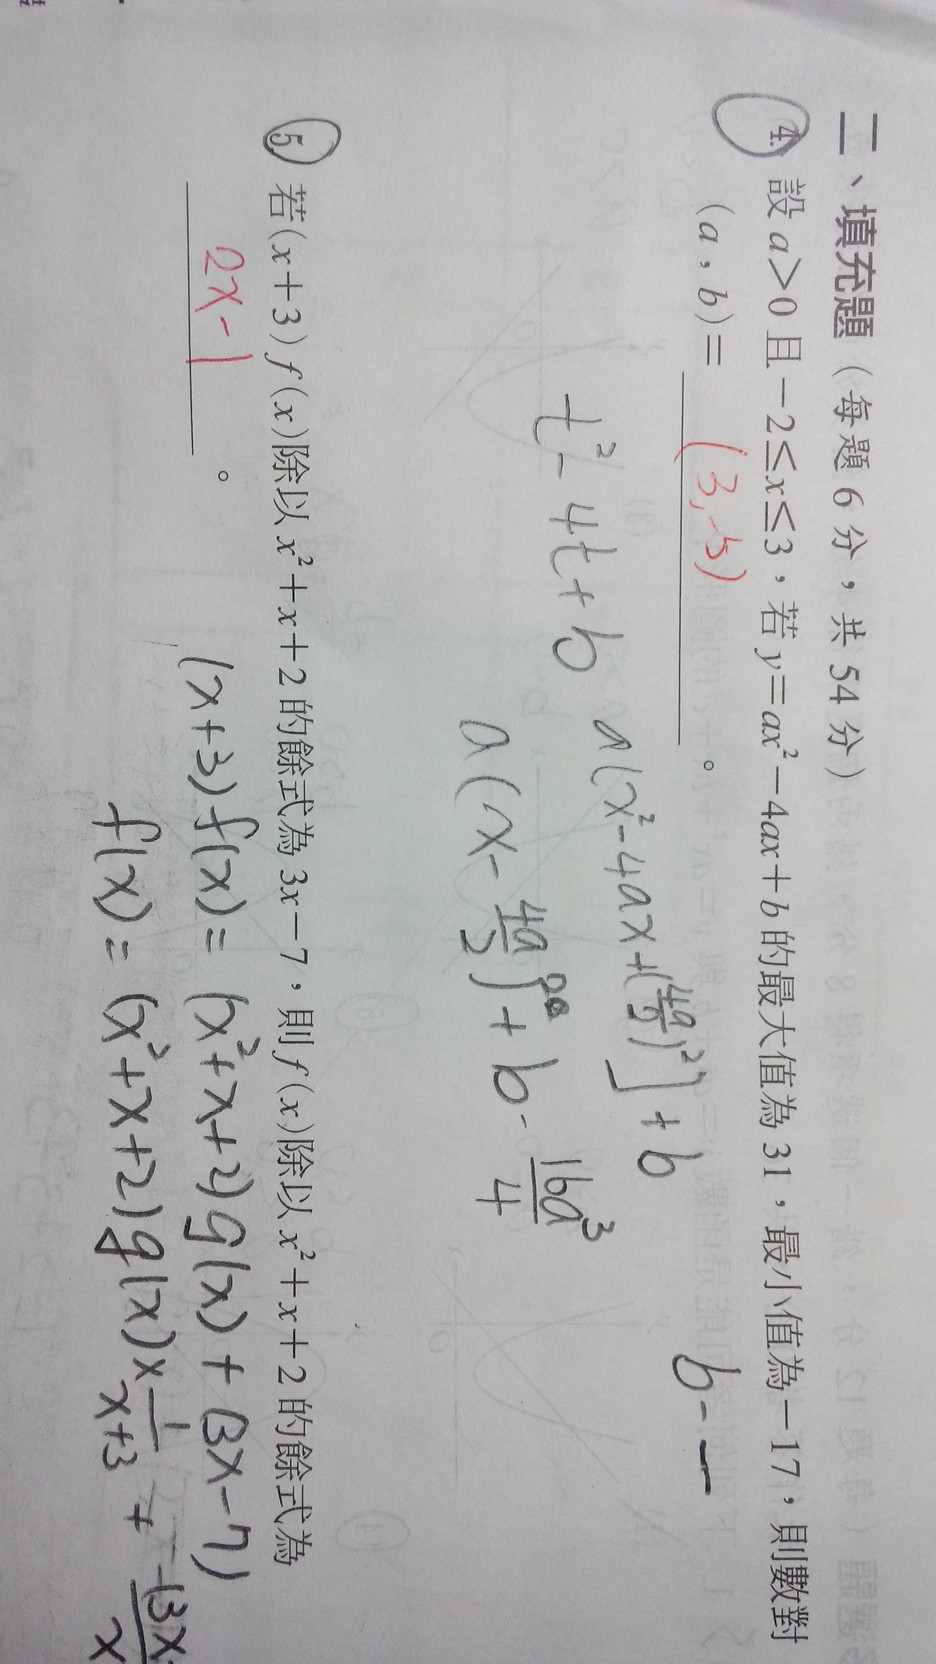 二、填充題（每題 6 分，共 54 分）
4. 設 a>0 且 −2≤x≤3，若 y=ax²−4ax+b 的最大值為 31，最小值為 −17，則數對
(a，b)= (3,-5) 。
b-
a(x²-4ax+(4a/2)²]+b
t²-4t+b
a(x-4a/2)²+b-16a³/4
5. 若(x+3) f(x)除以 x²+x+2 的餘式為 3x−7，則 f(x)除以 x²+x+2 的餘式為
2x-1 。
(x+3)f(x)=(x²+x+2)g(x)+(3x-7)
f(x)=(x²+x+2)g(x)x 1/x+3 +